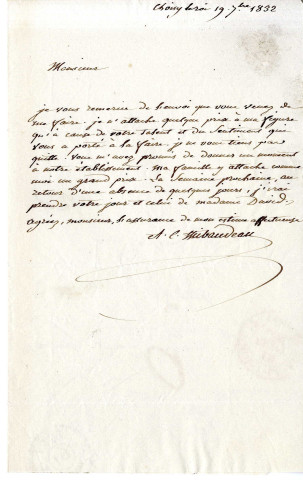 Choisy le roi 19 7bre 1832
Monsieur
je vous remercie de l'envoi que vous venez de
me faire. je n'attache quelque prix à ma figure
qu'à cause de votre talent et du sentiment qui
vous a porté à la faire. je ne vous tiens pas
quitte. vous m'avez promis de donner un moment
à notre établissement. Ma famille y attache comme
moi un grand prix. la semaine prochaine, au
retour d'une absence de quelques jours, j'irai
prendre votre jour et celui de madame David.
Agréez, monsieur, l'assurance de mon estime affectueuse
A. C. Thibaudeau